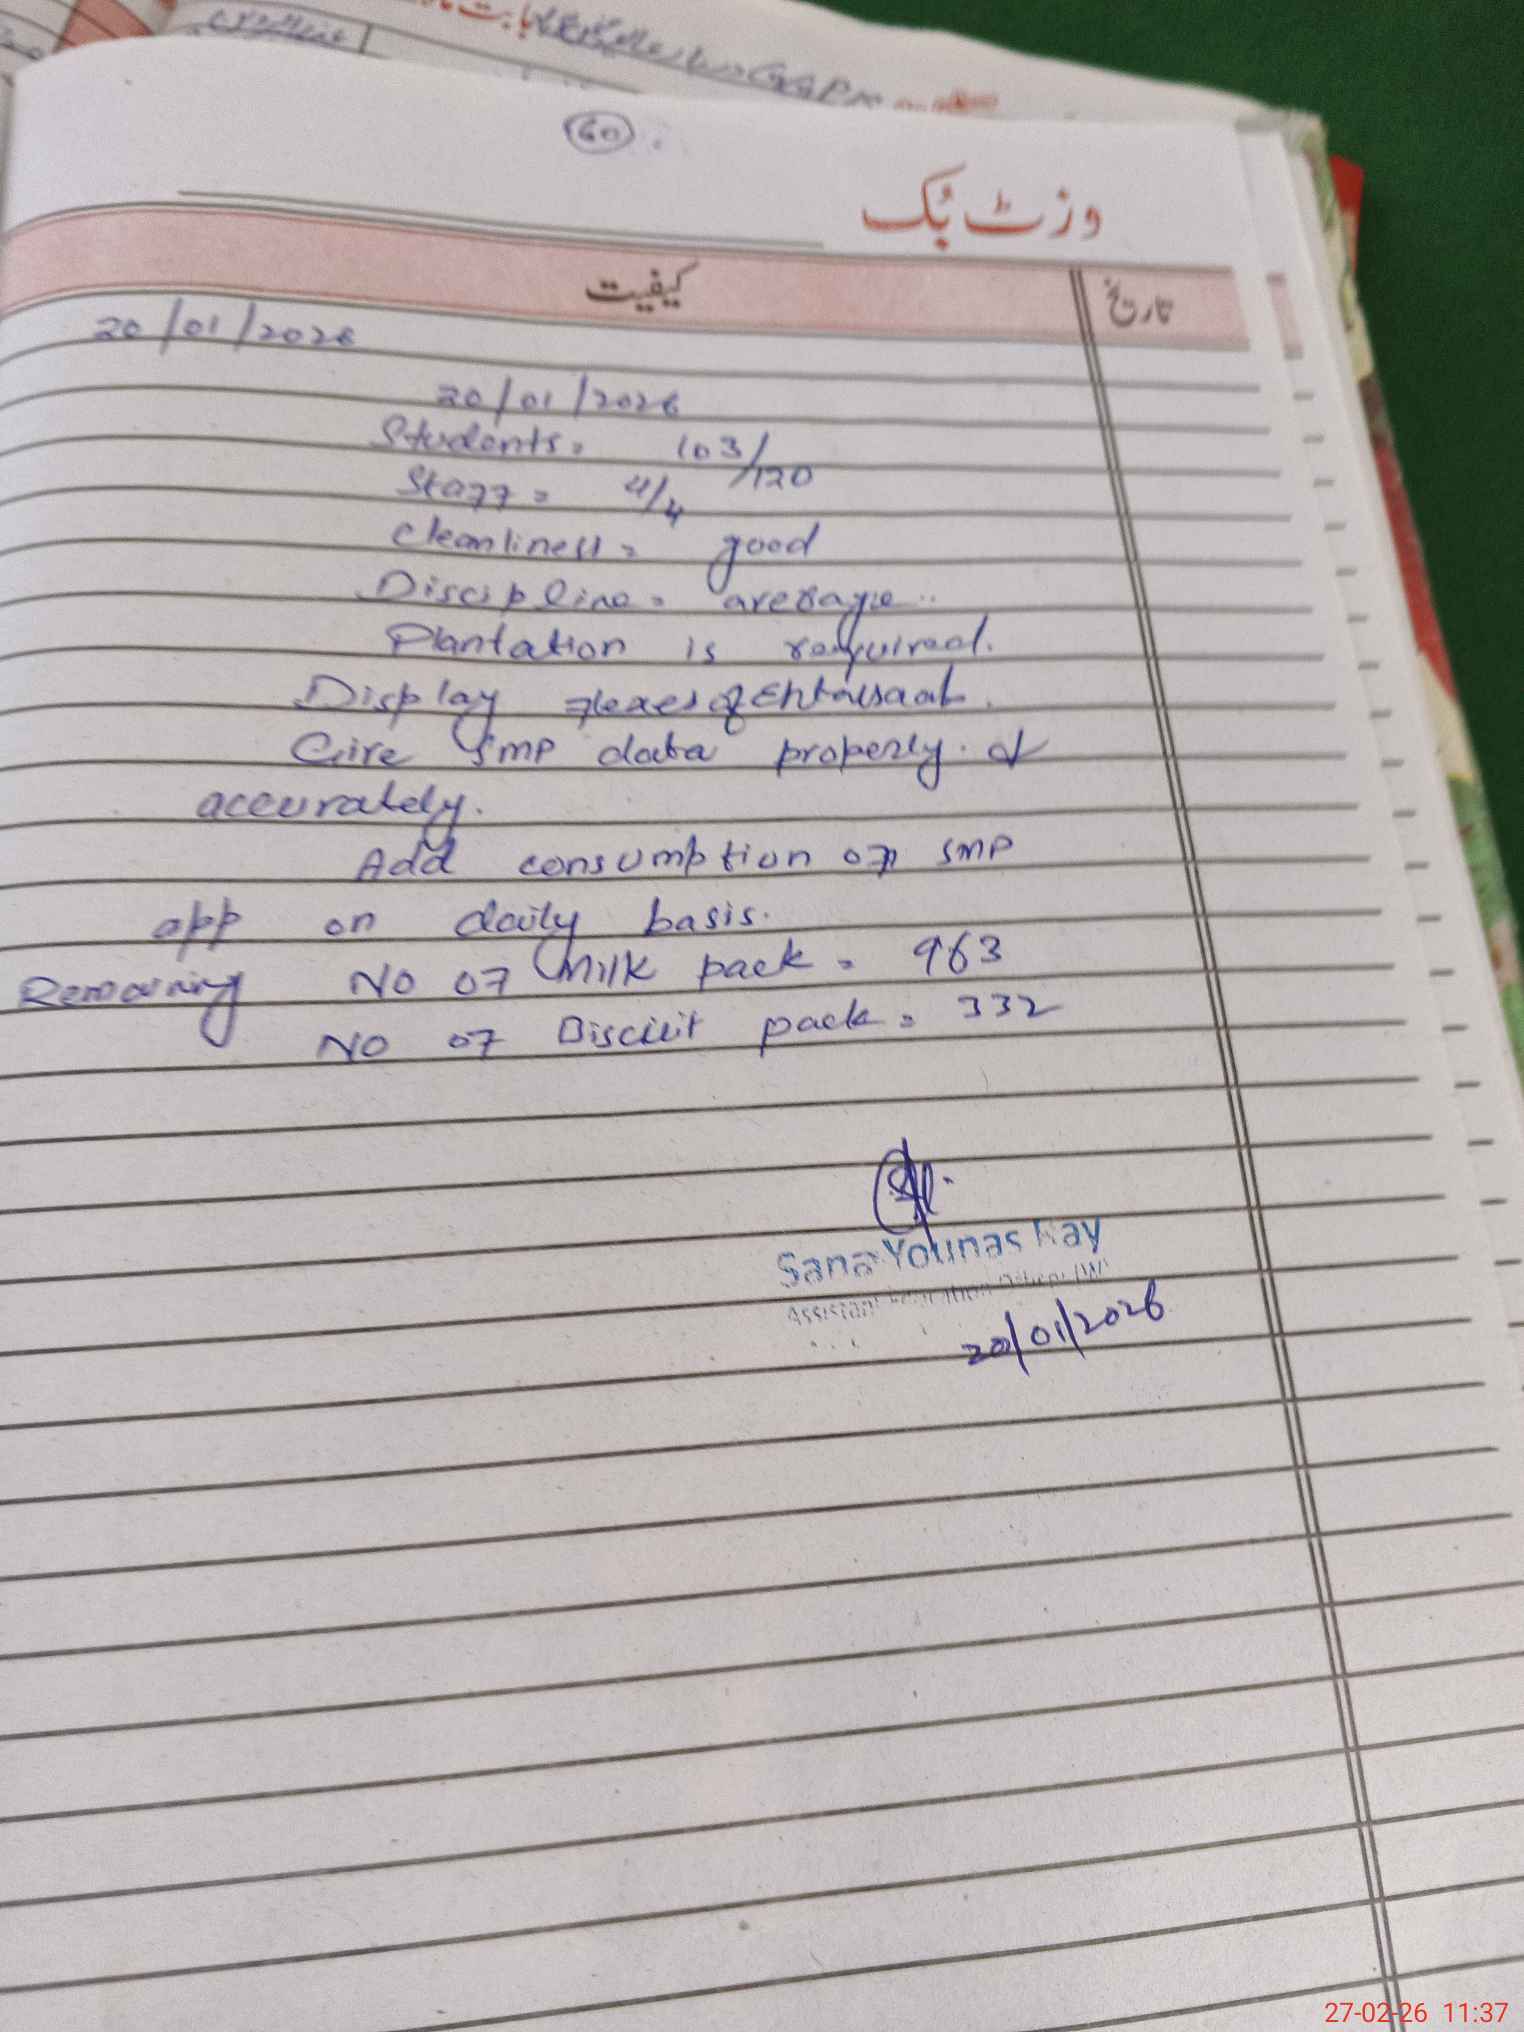 60
وزٹ بُک
کیفیت
تاریخ
20/01/2026
20/01/2026
Students = 103/120
Staff = 4/4
Cleanliness = good
Discipline = average..
Plantation is required.
Display flexes of Ehtasaab.
Give SMP data properly. &
accurately.
Add consumption on SMP
app on daily basis.
Remaining No of Milk pack = 963
No of Biscuit pack = 332
Sana Younas Ray
Assistant Education Officer (W)
20/01/2026
27-02-26 11:37